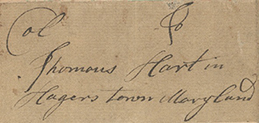 Col
Thomas Hart in
Hagers town Maryland